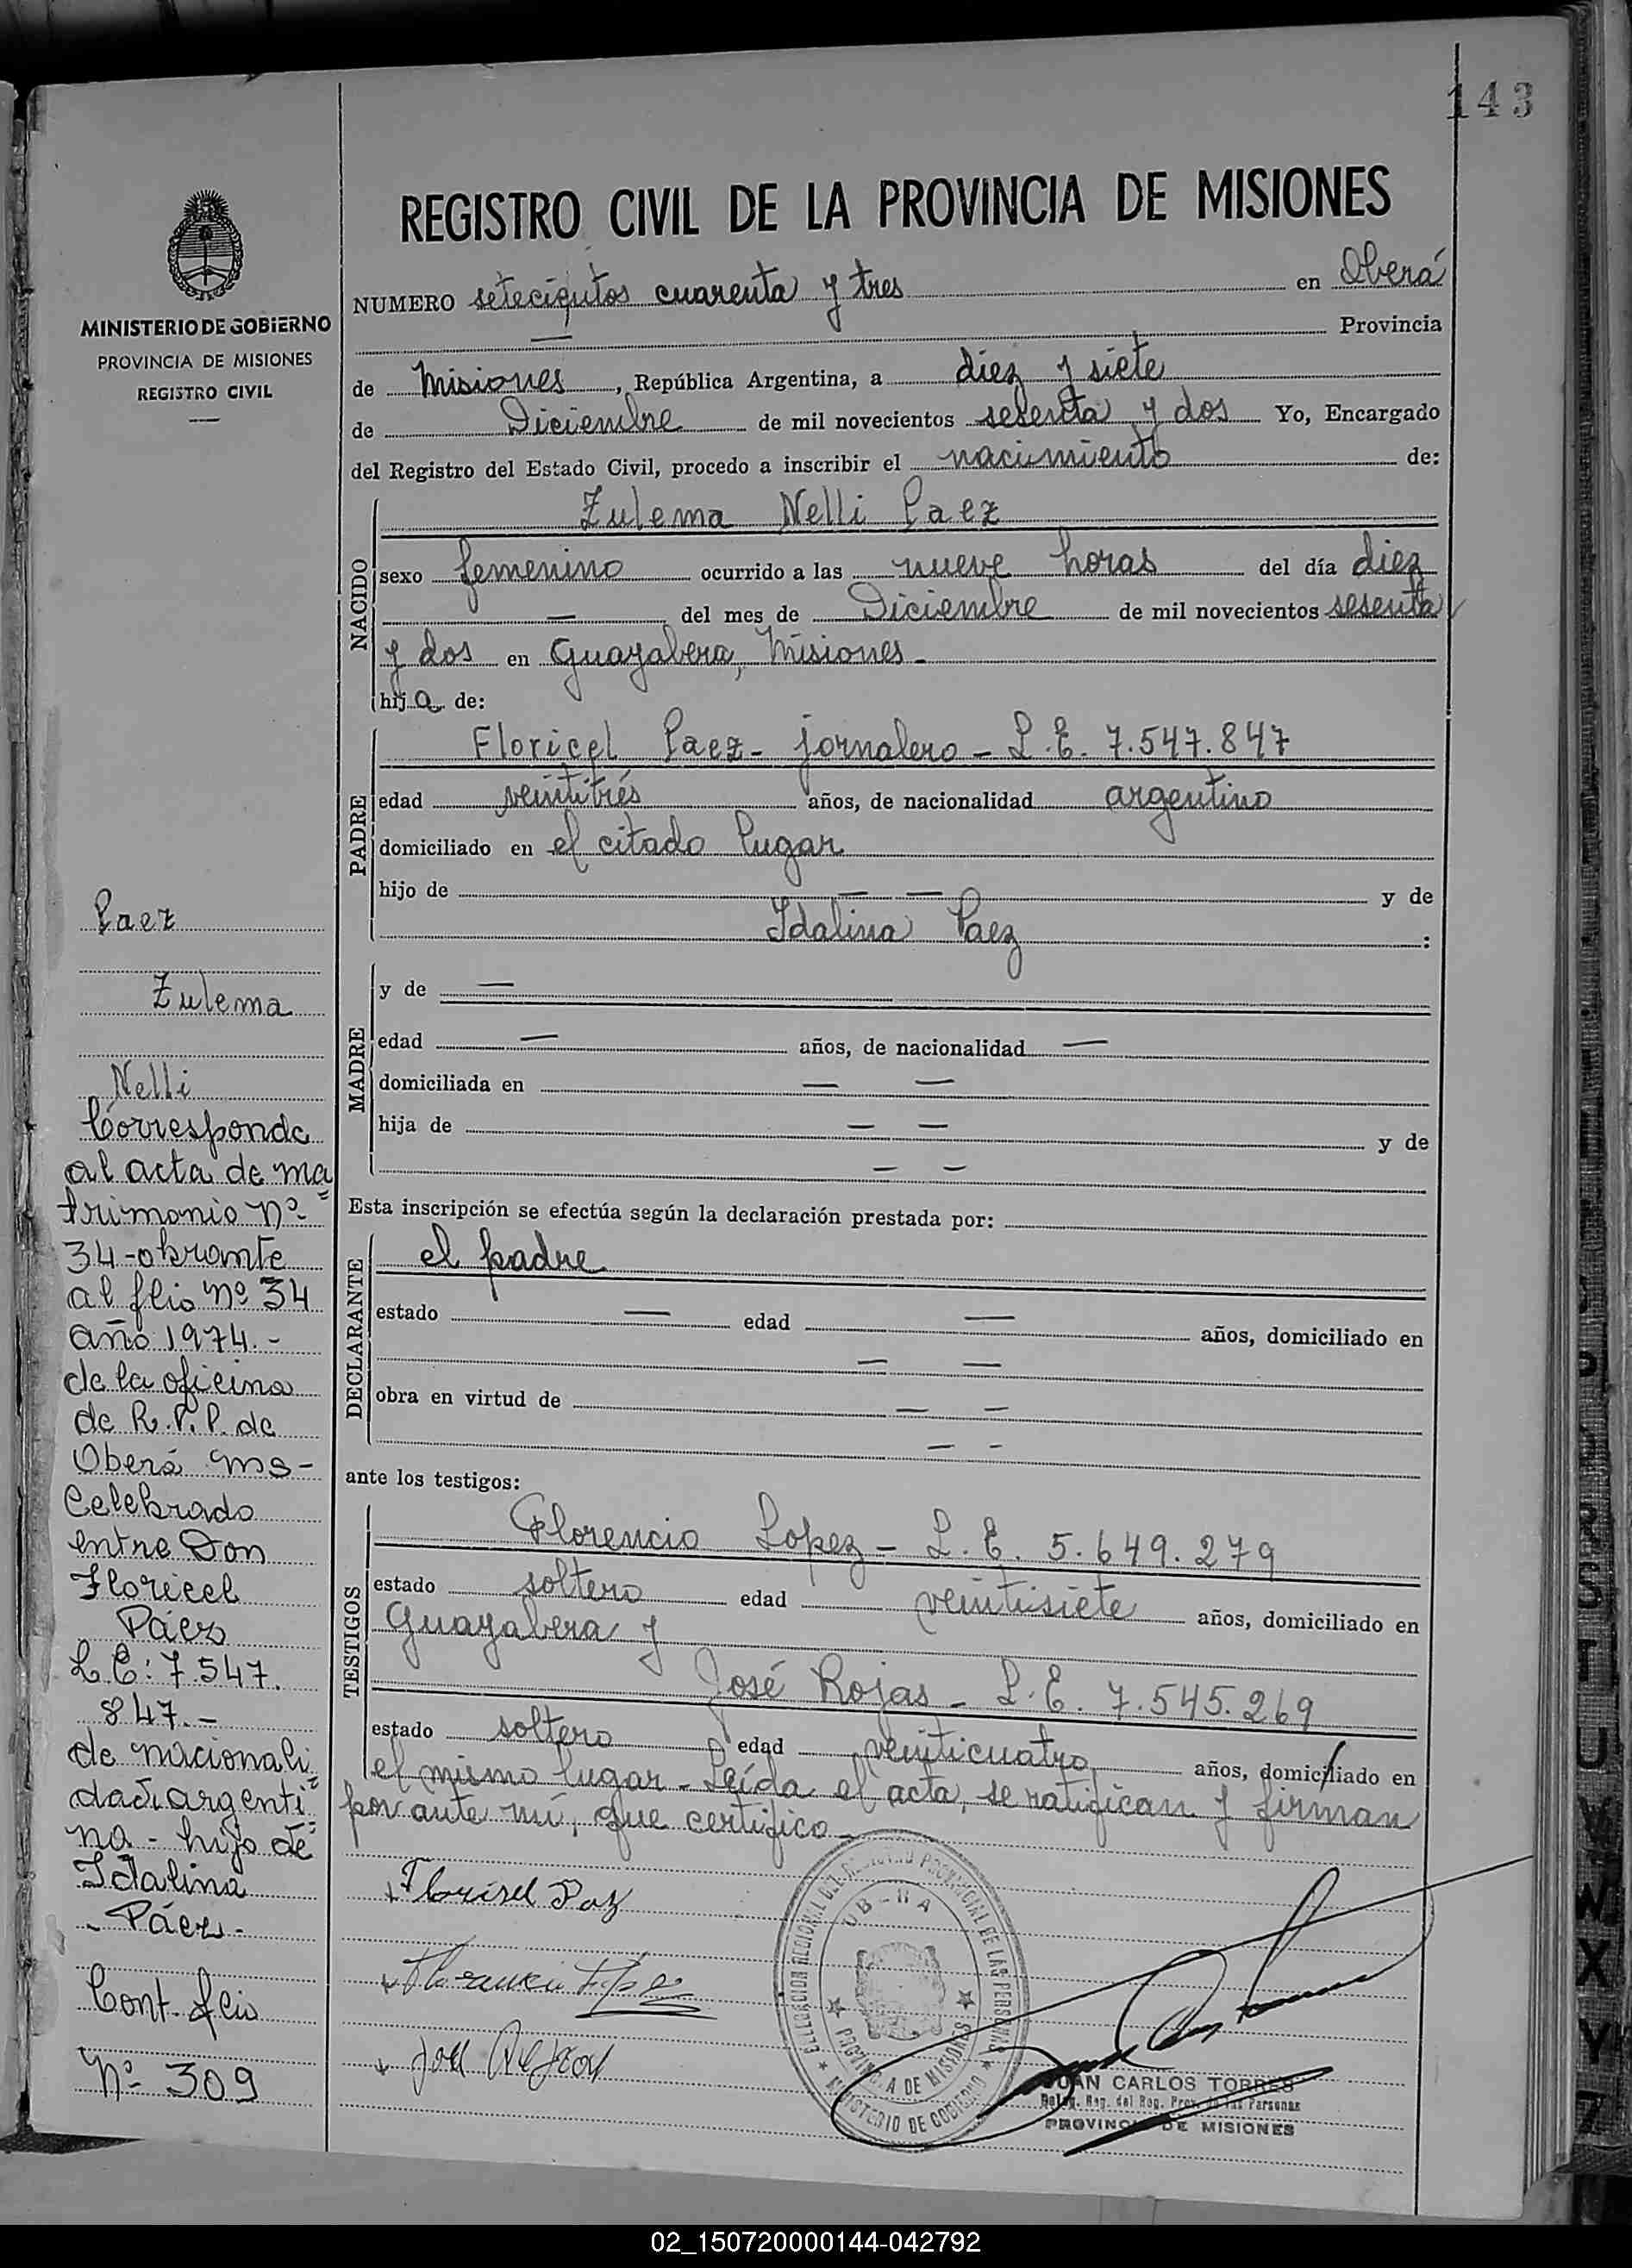 143
REGISTRO CIVIL DE LA PROVINCIA DE MISIONES
MINISTERIO DE GOBIERNO
PROVINCIA DE MISIONES
REGISTRO CIVIL
NUMERO setecientos cuarenta y tres en Oberá
— Provincia
de Misiones, República Argentina, a diez y siete
de Diciembre de mil novecientos sesenta y dos Yo, Encargado
del Registro del Estado Civil, procedo a inscribir el nacimiento de:
NACIDO
Zulema Nelli Paez
sexo femenino ocurrido a las nueve horas del día diez
— del mes de Diciembre de mil novecientos sesenta
y dos en Guayabera, Misiones -
hija de:
PADRE
Floricel Paez - jornalero - L.E. 7.547.847
edad veintitrés años, de nacionalidad argentino
domiciliado en el citado lugar
hijo de — — y de
Idalina Paez :
MADRE
y de —
edad — años, de nacionalidad —
domiciliada en — —
hija de — — y de
— —
Esta inscripción se efectúa según la declaración prestada por:
DECLARANTE
el padre
estado — edad — años, domiciliado en
— —
obra en virtud de — —
— -
ante los testigos:
TESTIGOS
Florencio Lopez - L.E. 5.649.279
estado soltero edad veintisiete años, domiciliado en
Guayabera y
José Rojas - L.E. 7.545.269
estado soltero edad veinticuatro años, domiciliado en
el mismo lugar - Leída el acta, se ratifican y firman
por ante mí, que certifico -
Florisel Paz
JUAN CARLOS TORRES
Deleg. Reg. del Reg. Prov. de las Personas
PROVINCIA DE MISIONES
DELEGACION REGIONAL DEL REGISTRO PROVINCIAL DE LAS PERSONAS
OBERA
PROVINCIA DE MISIONES
MINISTERIO DE GOBIERNO
Paez
Zulema
Nelli
Corresponde
al acta de ma
trimonio nº
34-obrante
al flio nº 34
año 1974.-
de la oficina
de R.P.P. de
Oberá Ms-
Celebrado
entre Don
Floricel
Páez
L.E: 7.547.
847.-
de nacionali
dad argenti
na - hijo de
Idalina
Páez -
Cont. flio
nº 309
02_150720000144-042792